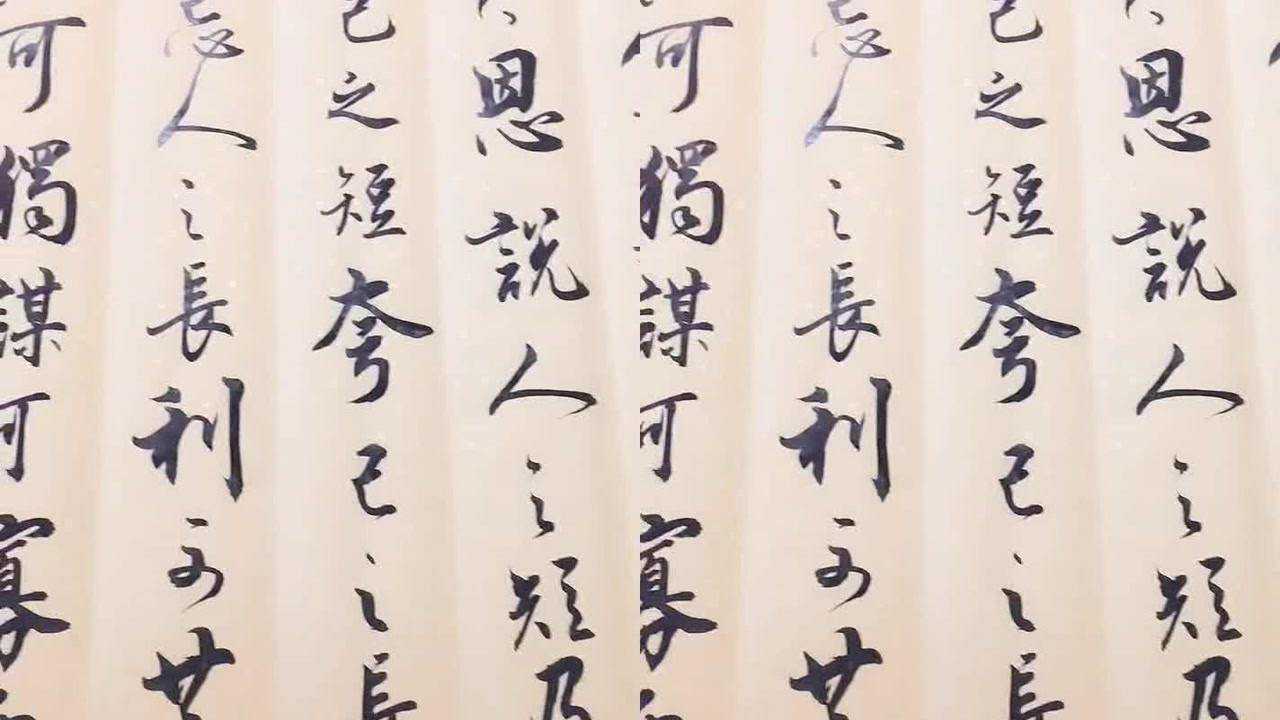 恩說人之短乃
己之短夸己之長
忌人之長利可共
可獨謀可寡
恩說人之短乃
己之短夸己之長
忌人之長利可共
可獨謀可寡